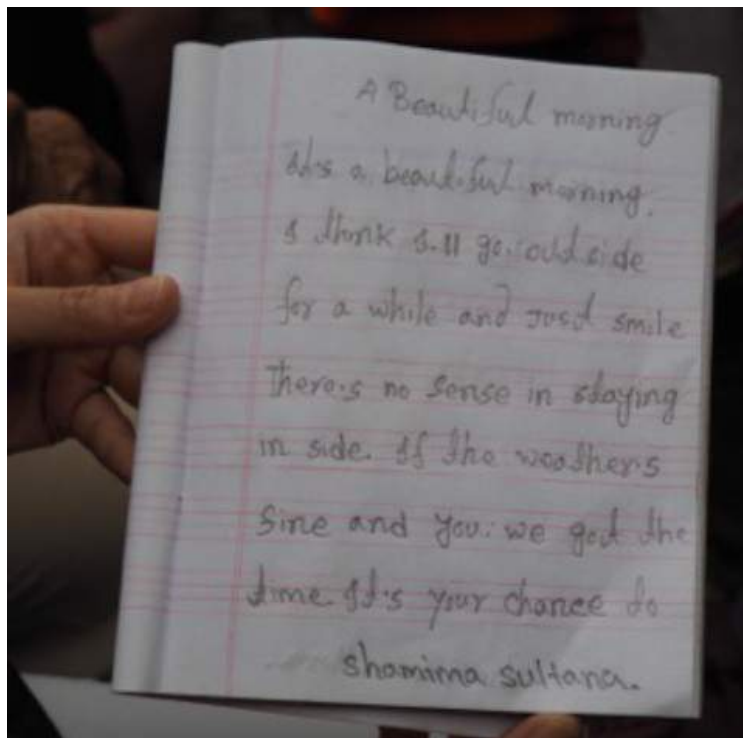 A Beautiful morning
It's a beautiful morning.
I think I.ll go. out side
for a while and Just smile
There.s no sense in staying
in side. If the weather.s
fine and you. we got the
time. It's your chance to
shamima sultana.